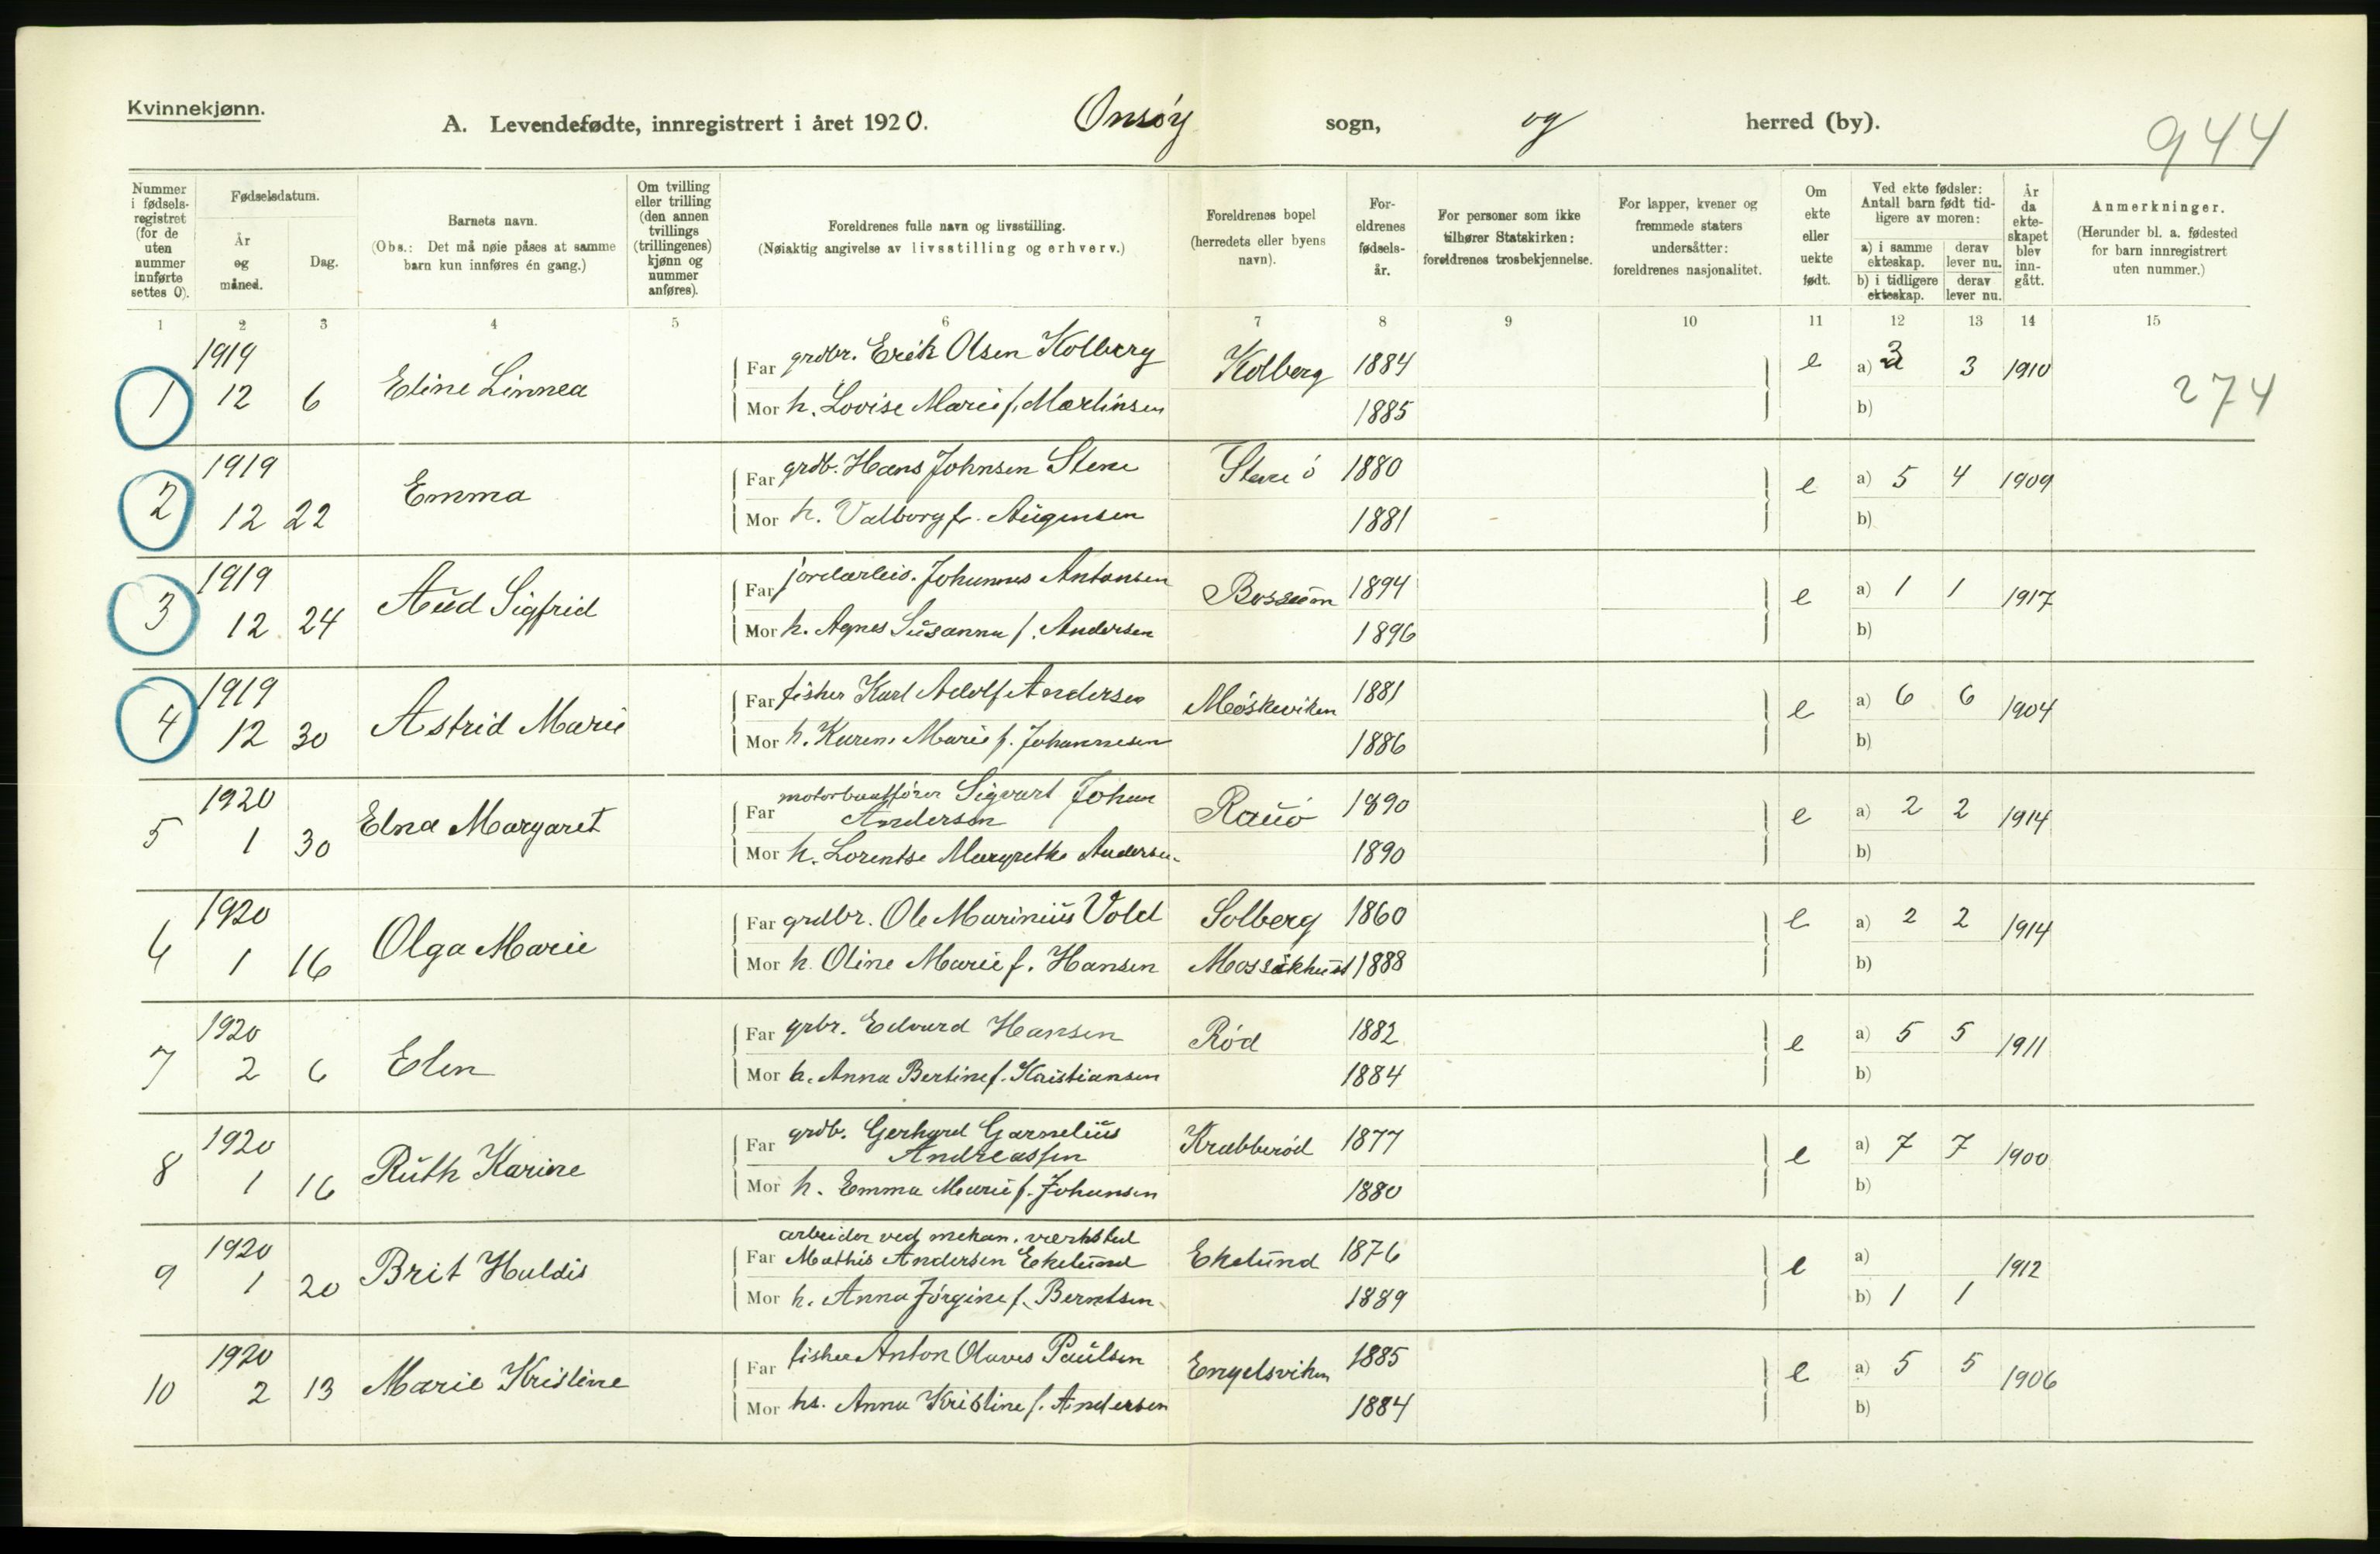 Kvinnekjønn.
A. Levendefødte, innregistrert i året 1920. Onsøy sogn, og herred (by).
944
Nummer i fødselsregistret (for de uten nummer innførte settes 0).
Fødselsdatum.
År og måned.
Dag.
Barnets navn.
(Obs.: Det må nøie påses at samme barn kun innføres én gang.)
Om tvilling eller trilling (den annen tvillings (trillingenes) kjønn og nummer anføres).
Foreldrenes fulle navn og livsstilling.
(Nøiaktig angivelse av livsstilling og erhverv.)
Foreldrenes bopel (herredets eller byens navn).
Foreldrenes fødselsår.
For personer som ikke tilhører Statskirken: foreldrenes trosbekjennelse.
For lapper, kvener og fremmede staters undersåtter: foreldrenes nasjonalitet.
Om ekte eller uekte født.
Ved ekte fødsler: Antall barn født tidligere av moren:
a) i samme ekteskap. derav lever nu.
b) i tidligere ekteskap. derav lever nu.
År da ekteskapet blev inngått.
Anmerkninger.
(Herunder bl. a. fødested for barn innregistrert uten nummer.)
1 2 3 4 5 6 7 8 9 10 11 12 13 14 15
1919
1 12 6 Eline Linnea
Far grdbr. Erik Olsen Kolberg Kolberg 1884 e a) 3 3 1910
Mor h. Lovise Marie f. Martinsen 1885 b)
274
1919
2 12 22 Emma
Far grdb. Hans Johnsen Stene Stene ö 1880 e a) 5 4 1909
Mor h. Valborg f. Augensen 1881 b)
1919
3 12 24 Aud Sigfrid
Far jordarbeid. Johannes Antonsen Bossum 1894 e a) 1 1 1917
Mor h. Agnes Susanna f. Andersen 1896 b)
1919
4 12 30 Astrid Marie
Far fisker Karl Adolf Andersen Møskeviken 1881 e a) 6 6 1904
Mor h. Karen Marie f. Johannesen 1886 b)
1920
5 1 30 Elna Margaret
Far motorbaatfører Sigvart Johan Andersen Rauö 1890 e a) 2 2 1914
Mor h. Lorentse Margrethe Andersen 1890 b)
1920
6 1 16 Olga Marie
Far grdbr. Ole Marinius Vold Solberg 1860 e a) 2 2 1914
Mor h. Oline Marie f. Hansen 1888 b)
1920
7 2 6 Elen
Far grbr. Edvard Hansen Rød 1882 e a) 5 5 1911
Mor h. Anna Bertine f. Kristiansen 1884 b)
1920
8 1 16 Ruth Karine
Far grdb. Gerhard Garnelius Andreassen Krabberød 1877 e a) 7 7 1900
Mor h. Emma Marie f. Johansen 1880 b)
1920
9 1 20 Brit Huldis
arbeider ved mekan. værksted
Far Mathis Andersen Ekelund Ekelund 1876 e a) 1912
Mor h. Anna Jörgine f. Berntsen 1889 b) 1 1
1920
10 2 13 Marie Kristine
Far fisker Anton Olaves Paulsen Engelsviken 1885 e a) 5 5 1906
Mor hs. Anna Kristine f. Andersen 1884 b)